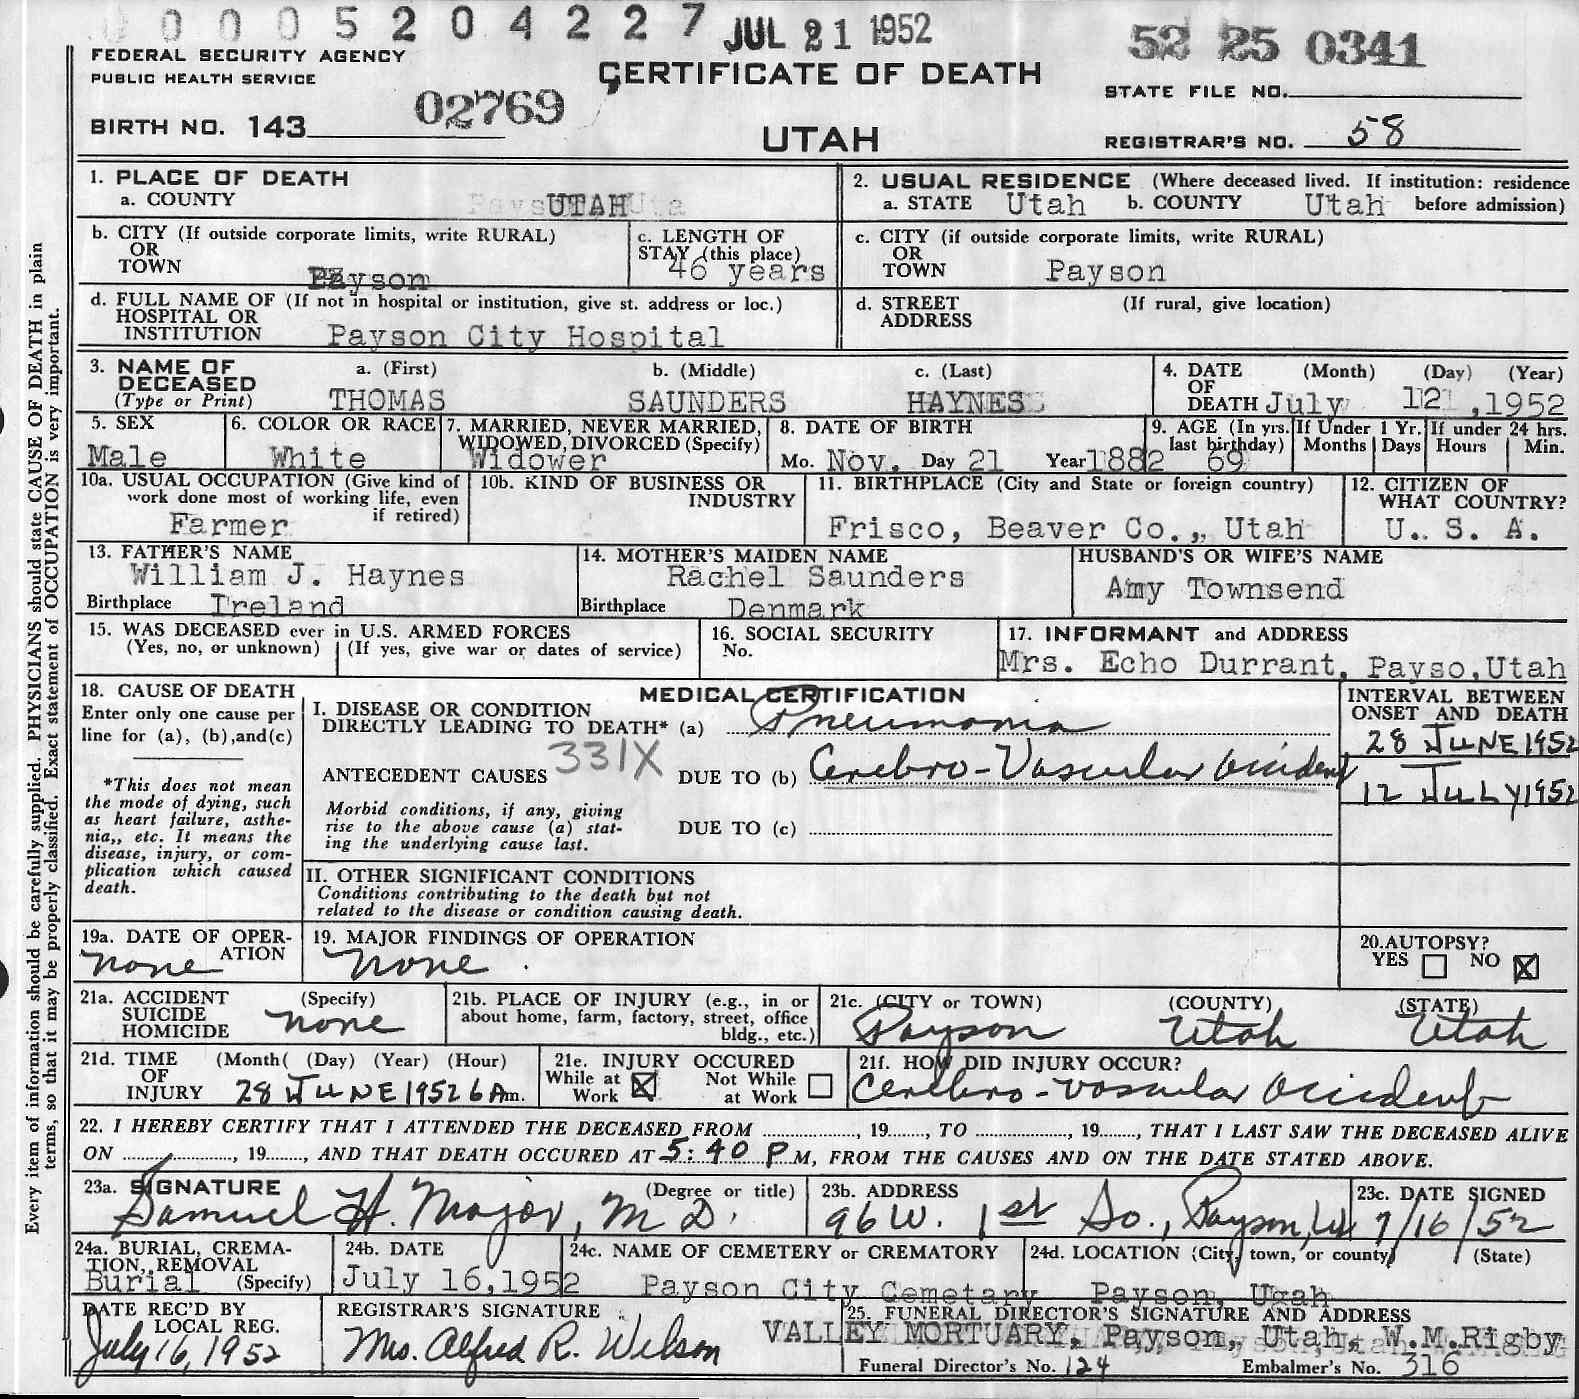 0 0 0 5 2 0 4 2 2 7 JUL 21 1952
52 25 0341
FEDERAL SECURITY AGENCY
PUBLIC HEALTH SERVICE
CERTIFICATE OF DEATH
STATE FILE NO.
02769
BIRTH NO. 143
UTAH
REGISTRAR'S NO. 58
1. PLACE OF DEATH
a. COUNTY UTAH
2. USUAL RESIDENCE (Where deceased lived. If institution: residence before admission)
a. STATE Utah b. COUNTY Utah
b. CITY (If outside corporate limits, write RURAL)
OR
TOWN Payson
c. LENGTH OF
STAY (this place)
46 years
c. CITY (if outside corporate limits, write RURAL)
OR
TOWN Payson
d. FULL NAME OF (If not in hospital or institution, give st. address or loc.)
HOSPITAL OR
INSTITUTION Payson City Hospital
d. STREET (If rural, give location)
ADDRESS
3. NAME OF DECEASED (Type or Print)
a. (First) b. (Middle) c. (Last)
THOMAS SAUNDERS HAYNES
4. DATE OF DEATH (Month) (Day) (Year)
July 12, 1952
5. SEX
Male
6. COLOR OR RACE
White
7. MARRIED, NEVER MARRIED,
WIDOWED, DIVORCED (Specify)
Widower
8. DATE OF BIRTH
Mo. Nov. Day 21 Year 1882
9. AGE (In yrs. last birthday)
69
If Under 1 Yr.
Months Days
If under 24 hrs.
Hours Min.
10a. USUAL OCCUPATION (Give kind of
work done most of working life, even
if retired)
Farmer
10b. KIND OF BUSINESS OR
INDUSTRY
11. BIRTHPLACE (City and State or foreign country)
Frisco, Beaver Co., Utah
12. CITIZEN OF
WHAT COUNTRY?
U. S. A.
13. FATHER'S NAME
William J. Haynes
Birthplace Ireland
14. MOTHER'S MAIDEN NAME
Rachel Saunders
Birthplace Denmark
HUSBAND'S OR WIFE'S NAME
Amy Townsend
15. WAS DECEASED ever in U.S. ARMED FORCES
(Yes, no, or unknown) (If yes, give war or dates of service)
16. SOCIAL SECURITY
No.
17. INFORMANT and ADDRESS
Mrs. Echo Durrant, Payso,Utah
18. CAUSE OF DEATH
Enter only one cause per
line for (a), (b),and(c)
*This does not mean
the mode of dying, such
as heart failure, asthe-
nia,, etc. It means the
disease, injury, or com-
plication which caused
death.
MEDICAL CERTIFICATION
I. DISEASE OR CONDITION
DIRECTLY LEADING TO DEATH* (a) Pneumonia
ANTECEDENT CAUSES 331X DUE TO (b) Cerebro-Vascular Accident
Morbid conditions, if any, giving
rise to the above cause (a) stat-
ing the underlying cause last.
DUE TO (c)
INTERVAL BETWEEN
ONSET AND DEATH
28 JUNE 1952
12 JULY 1952
II. OTHER SIGNIFICANT CONDITIONS
Conditions contributing to the death but not
related to the disease or condition causing death.
19a. DATE OF OPER-
ATION
none
19. MAJOR FINDINGS OF OPERATION
none.
20.AUTOPSY?
YES NO X
21a. ACCIDENT (Specify)
SUICIDE
HOMICIDE none
21b. PLACE OF INJURY (e.g., in or
about home, farm, factory, street, office
bldg., etc.)
21c. (CITY or TOWN) (COUNTY) (STATE)
Payson Utah Utah
21d. TIME (Month( (Day) (Year) (Hour)
OF
INJURY 28 JUNE 1952 6 Am.
21e. INJURY OCCURED
While at Work X Not While at Work
21f. HOW DID INJURY OCCUR?
Cerebro-vascular Accident
22. I HEREBY CERTIFY THAT I ATTENDED THE DECEASED FROM , 19 , TO , 19 , THAT I LAST SAW THE DECEASED ALIVE
ON , 19 , AND THAT DEATH OCCURED AT 5:40 P M, FROM THE CAUSES AND ON THE DATE STATED ABOVE.
23a. SIGNATURE (Degree or title)
Samuel H. Major, M D.
23b. ADDRESS
96 W. 1st So., Payson, Ut
23c. DATE SIGNED
7/16/52
24a. BURIAL, CREMA-
TION, REMOVAL
Burial (Specify)
24b. DATE
July 16,1952
24c. NAME OF CEMETERY or CREMATORY
Payson City Cemetary
24d. LOCATION (City, town, or county) (State)
Payson, Ugah
DATE REC'D BY
LOCAL REG.
July 16, 1952
REGISTRAR'S SIGNATURE
Mrs. Alfred R. Wilson
25. FUNERAL DIRECTOR'S SIGNATURE AND ADDRESS
VALLEY MORTUARY, Payson, Utah, W.M.Rigby
Funeral Director's No. 124 Embalmer's No. 316
Every item of information should be carefully supplied. PHYSICIANS should state CAUSE OF DEATH in plain
terms, so that it may be properly classified. Exact statement of OCCUPATION is very important.